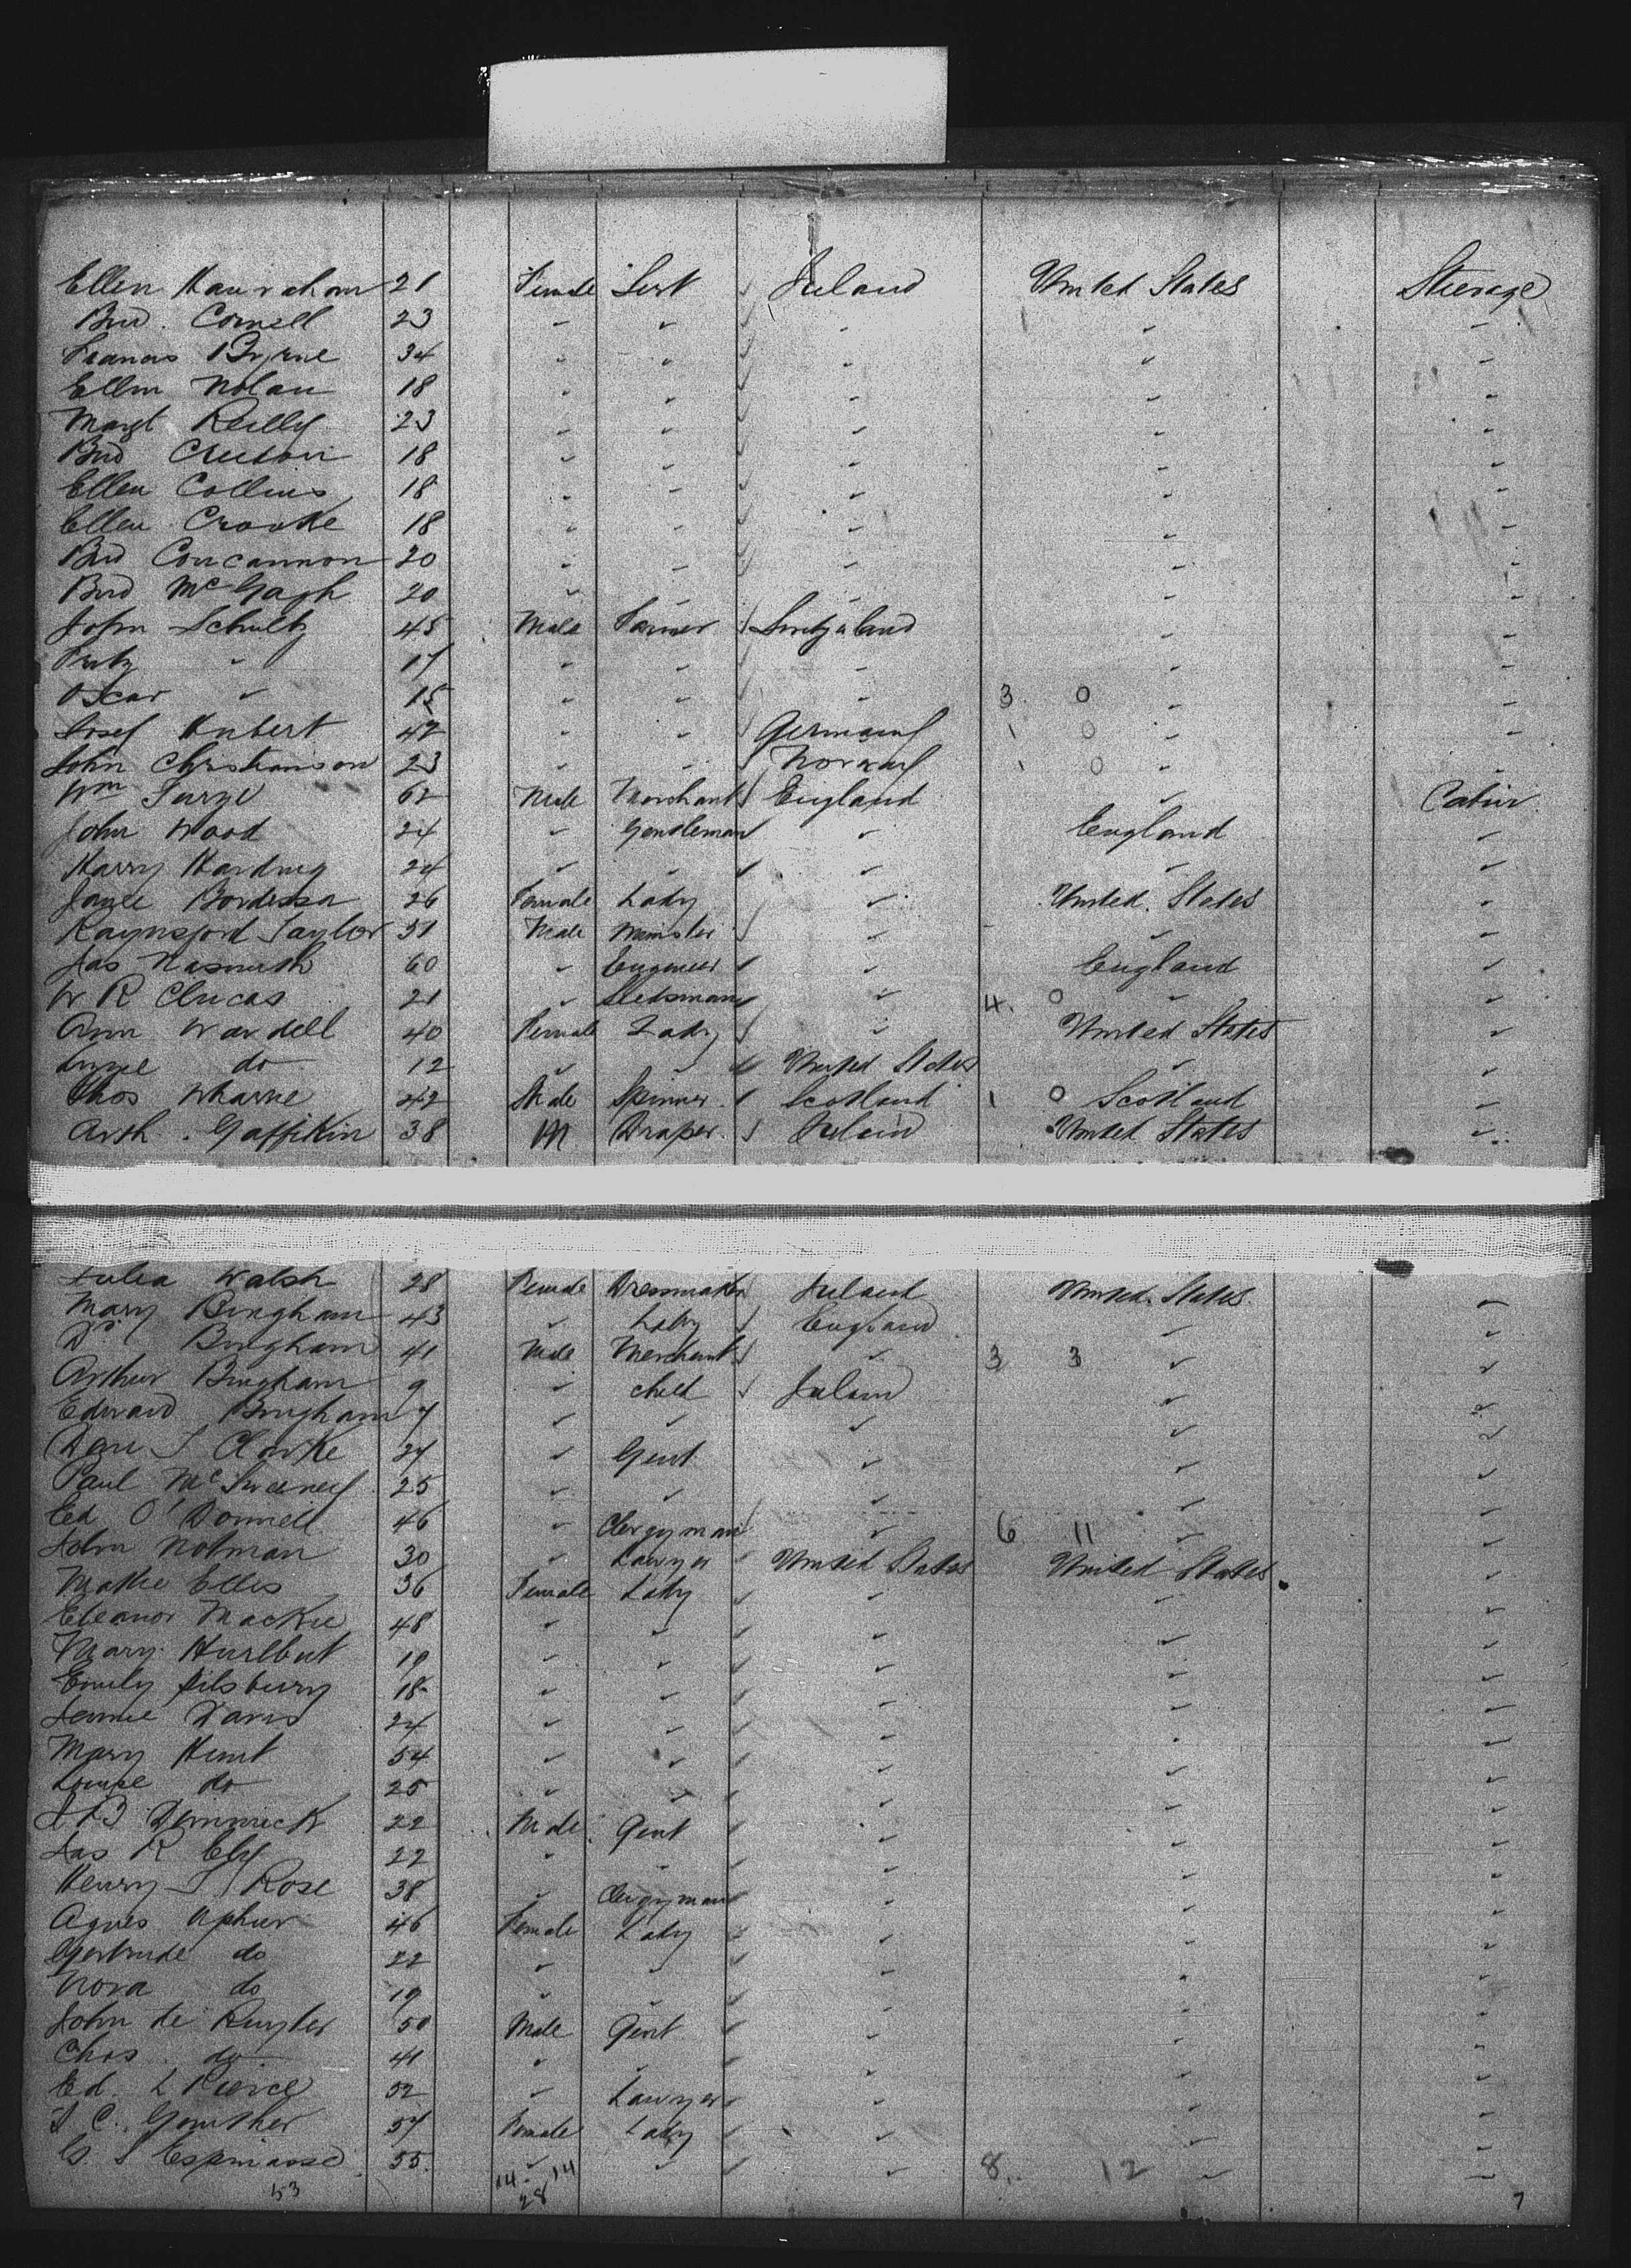 Ellen Hanrahan 21 Female Servt Ireland United States Steerage
Brid. Connell 23 " " " " "
Frances Byrne 34 " " " " "
Ellen Nolan 18 " " " " "
Margt Reilly 23 " " " " "
Brid 18 " " " " "
Ellen Collins 18 " " " " "
Ellen Crooke 18 " " " " "
Brid Concannon 20 " " " " "
Brid McGagh 20 " " " " "
John Schultz 45 Male Farmer Switzerland " "
Fritz " 17 " " " " "
Oscar " 15 " " " 3 0 " "
Josef Hubert 42 " " Germany 1 0 " "
John Christianson 23 " " Norway 1 0 " "
Wm 62 Male Merchant England " Cabin
John Wood 24 " Gentleman " England "
Harry Harding 24 " " " " "
Janee Bordessa 26 Female Lady " United States "
Raynsford Taylor 51 Male Minister " " "
Jas Nasmith 60 " Engineer " England "
W R Clucas 21 " " 4. 0 " "
Ann Wardell 40 Female Lady " United States "
do 12 " " United States " "
Thos Wharne 42 Male Spinner Scotland 1 0 Scotland "
Arth. Gaffikin 38 M Draper Ireland United States "
Julia Walsh 28 Female Dressmaker Ireland United States "
Mary Bingham 43 " Lady England " "
Dr. Bingham 41 Male Merchant " 3 3 " "
Arthur Bingham 9 " child Ireland " "
Edward Bingham 7 " " " " "
Dan J Clarke 27 " Gent " " "
Paul McSweeney 25 " " " " "
Ed O'Donnell 46 " Clergyman " 6 11 " "
John Notman 30 " Lawyer United States United States "
Ellis 36 Female Lady " " "
Eleanor Mackie 48 " " " " "
Mary Hurlbut 19 " " " " "
Emily Pilsbury 18 " " " " "
Jennie Davis 24 " " " " "
Mary Hunt 54 " " " " "
Louise do 25 " " " " "
J B Dimmick 22 Male Gent " " "
Jas R Ely 22 " " " " "
Henry S Rose 38 " Clergyman " " "
Agnes Upshur 46 Female Lady " " "
Gertrude do 22 " " " " "
Nora do 19 " " " " "
John de Ruyter 50 Male Gent " " "
Chas. do 41 " " " " "
Ed. L Pierce 52 " Lawyer " " "
C. Gunther 57 Female Lady " " "
Espinasse 55 " " " 8. 12 " "
53 14 14 7
28